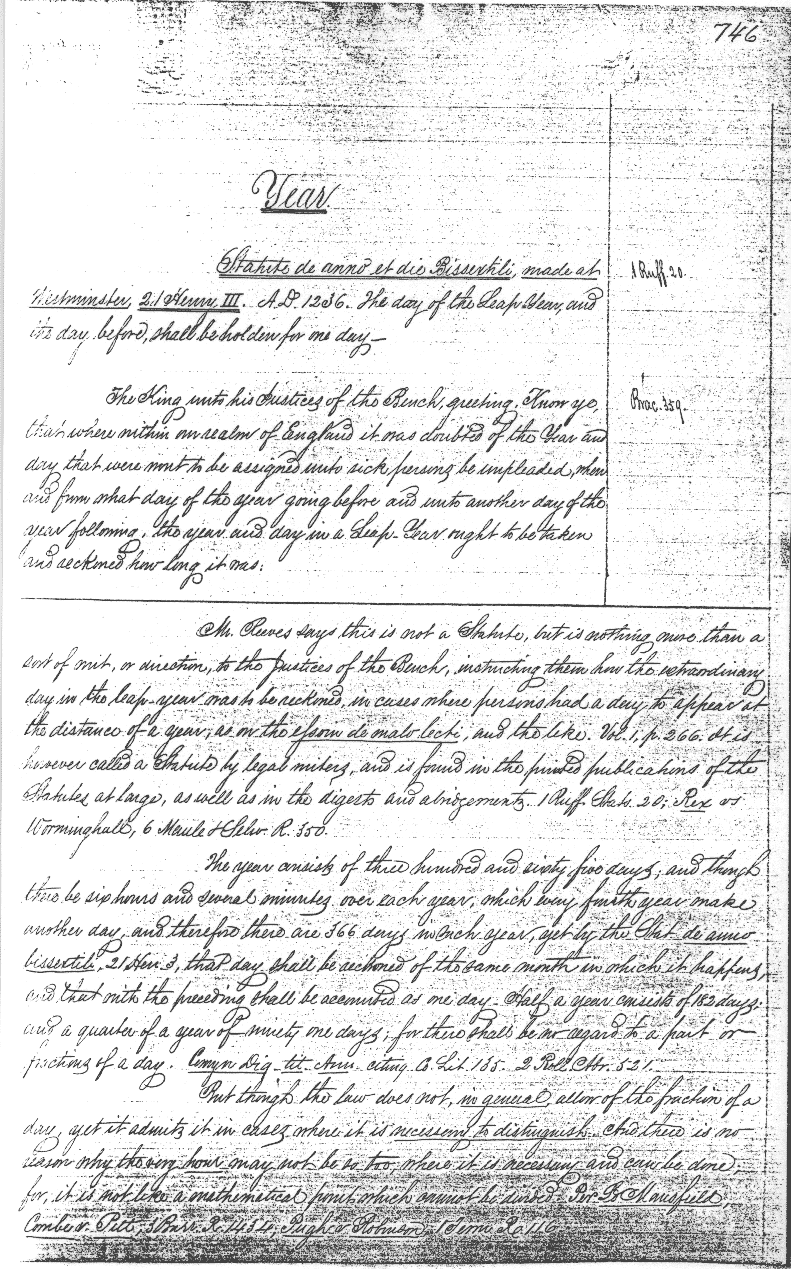 746
Year.
Statute de anno et die Bissextili, made at
1 Ruff. 20.
Westminster, 21 Henry III. A.D. 1236. The day of the Leap-Year, and
the day before, shall be holden for one day—
The King unto his Justices of the Bench, greeting. Know ye,
Brac. 359.
that where within our realm of England it was doubted of the Year and
day that were wont to be assigned unto sick persons be impleaded, when
and from what day of the year going before and unto another day of the
year following, the year and day in a Leap-Year ought to be taken
and reckoned how long it was:
Mr. Reeves says this is not a Statute, but is nothing more than a
sort of writ, or direction, to the Justices of the Bench, instructing them how the extraordinary
day in the leap-year was to be reckoned, in cases where persons had a day to appear at
the distance of a year, as on the essoin de malo lecti, and the like. Vol. 1, p. 266. It is
however called a Statute by legal writers, and is found in the printed publications of the
Statutes at large, as well as in the digests and abridgements. 1 Ruff. Stats. 20; Rex vs
Worminghall, 6 Maule & Selw. R. 350.
The year consists of three hundred and sixty five days; and though
there be six hours and several minutes over each year, which every fourth year make
another day, and therefore there are 366 days in such year, yet by the Stat. de anno
bissextili, 21 Hen. 3, that day shall be reckoned of the same month in which it happens,
and that with the preceding shall be accounted as one day. Half a year consists of 182 days;
and a quarter of a year of ninety one days; for there shall be no regard to a part or
fractions of a day. Comyn Dig. tit. Ann. citing Co. Lit. 135. 2 Roll. Abr. 521.
But though the law does not, in general, allow of the fraction of a
day, yet it admits it in cases where it is necessary to distinguish. And there is no
reason why the very hour may not be so too, where it is necessary and can be done;
for, it is not like a mathematical point which cannot be divided. Per Ld Mansfield,
Combe v. Pitt, 3 Burr. R. 1434, Pugh v. Robinson, 1 Term R. 116